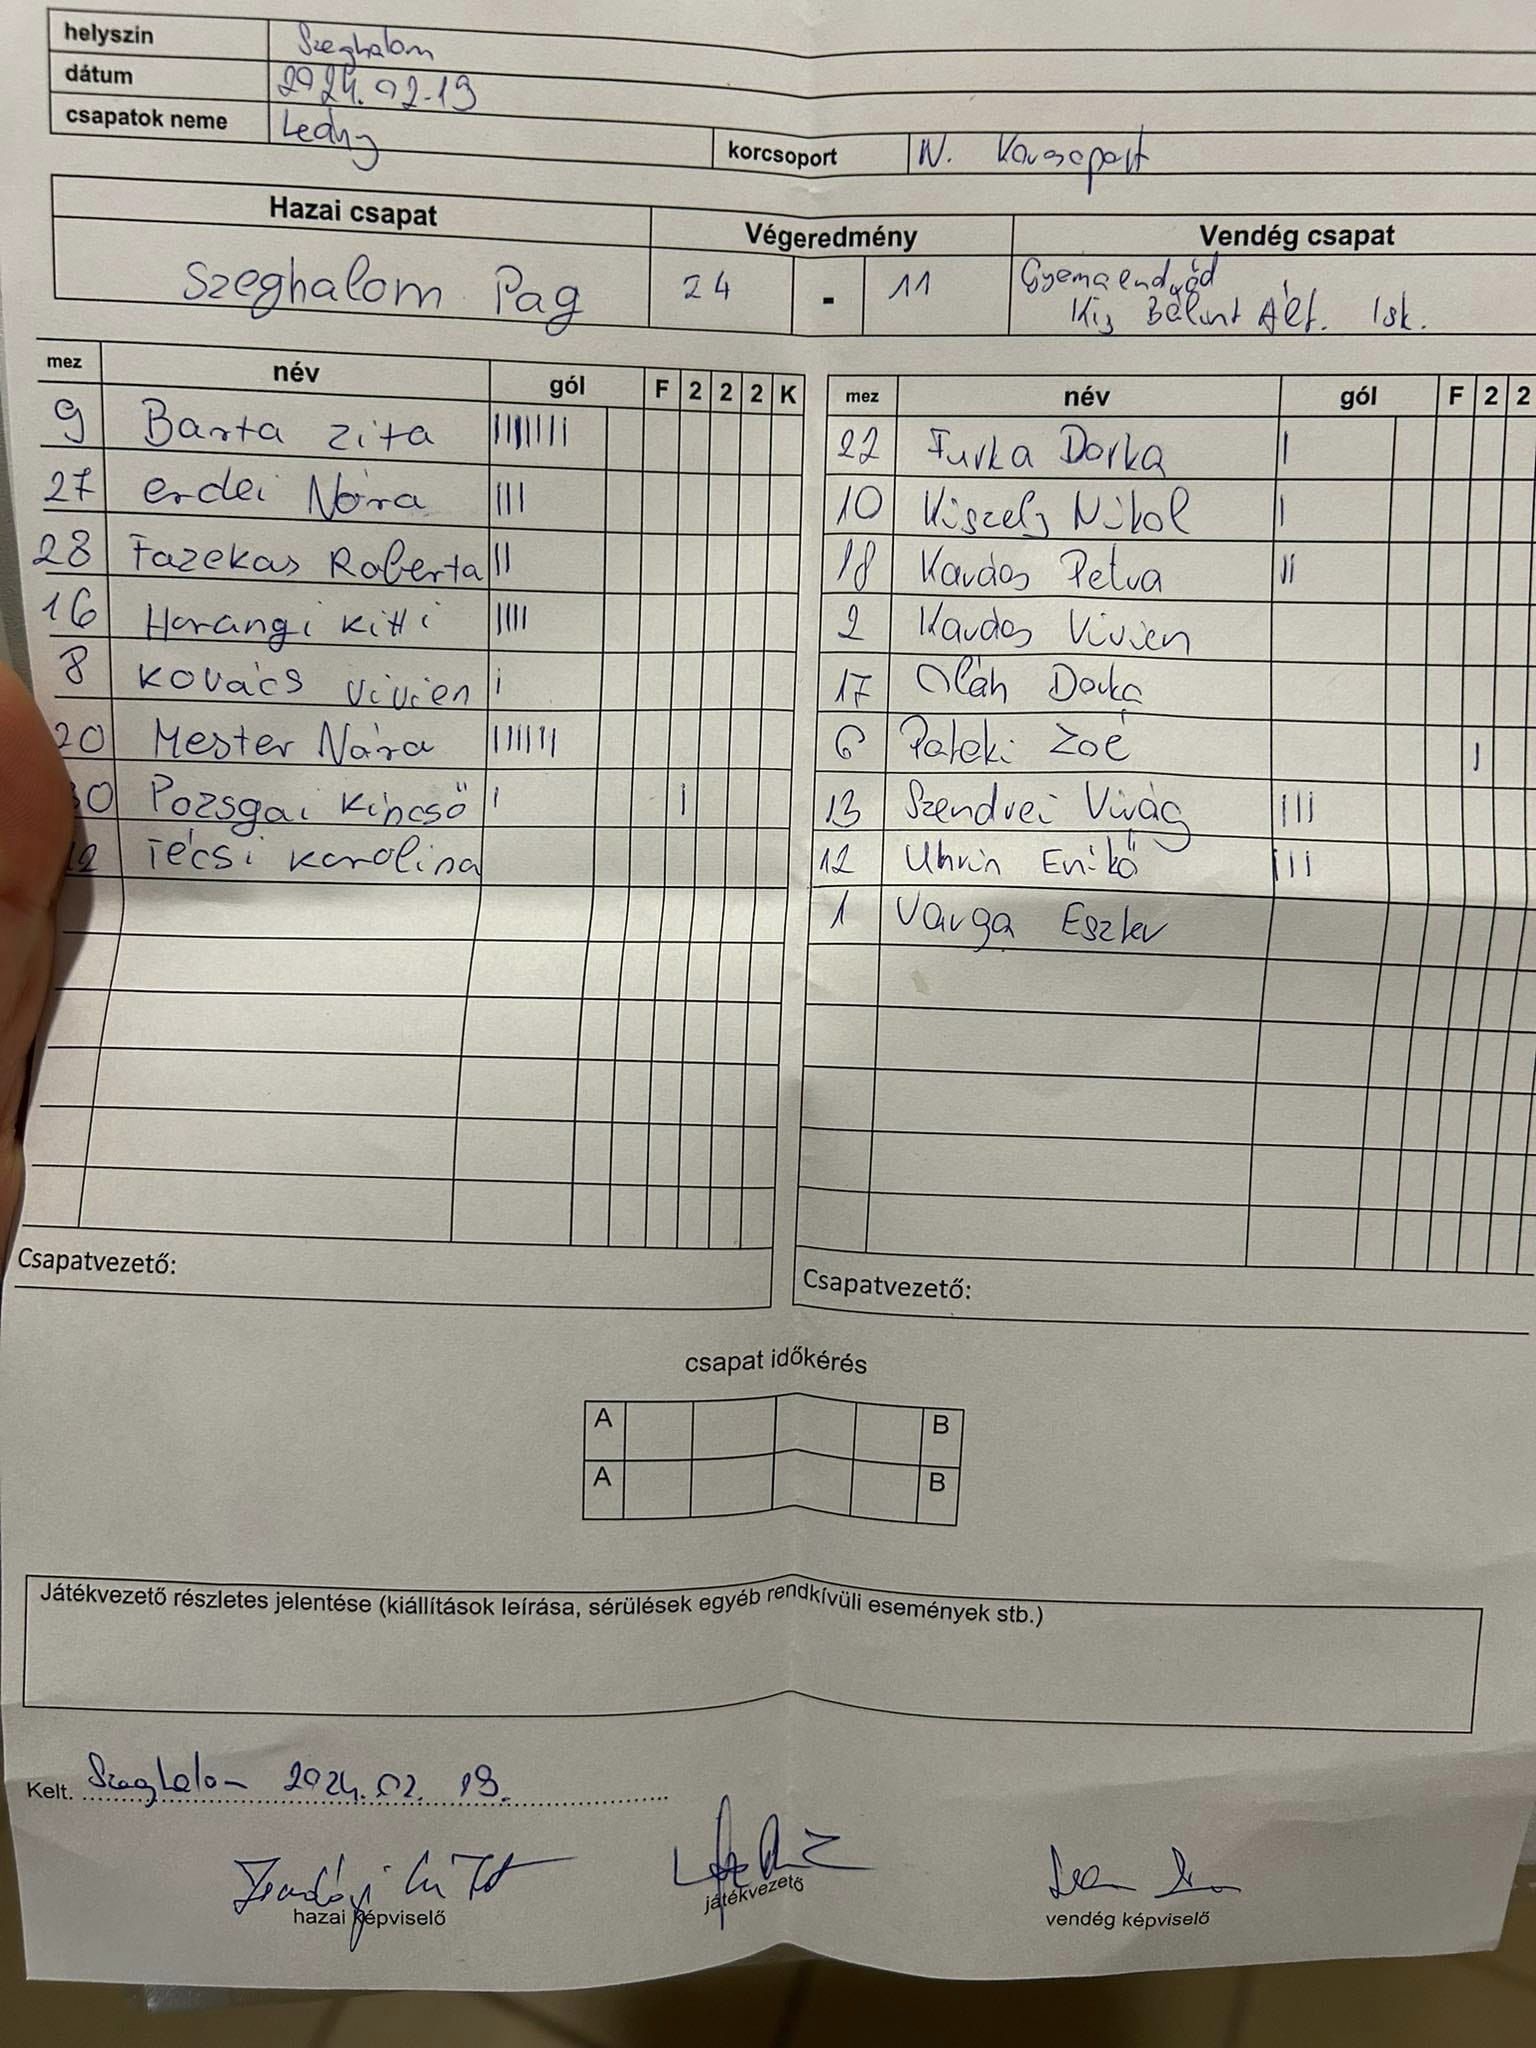 helyszín Szeghalom
dátum 2024.02.19
csapatok neme Leány korcsoport IV. Korcsoport
Hazai csapat Végeredmény Vendég csapat
Szeghalom Pag 24 - 11 Gyomaendrőd
Kis Bálint Ált. Isk.
mez név gól F 2 2 2 K
9 Barta Zita IIIIIIII
27 Erdei Nóra III
28 Fazekas Roberta II
16 Harangi Kitti IIII
8 Kovács Vivien I
20 Mester Nóra IIIIII
30 Pozsgai Kincső I I
12 Técsi Karolina
Csapatvezető:
mez név gól F 2 2
22 Furka Dorka I
10 Kiszely Nikol I
18 Kardos Petra II
2 Kardos Vivien
17 Oláh Dorka
6 Pataki Zoé I
13 Szendrei Virág III
12 Uhrin Enikő III
1 Varga Eszter
Csapatvezető:
csapat időkérés
A B
A B
Játékvezető részletes jelentése (kiállítások leírása, sérülések egyéb rendkívüli események stb.)
Kelt. Szeghalom 2024.02.19.
hazai képviselő játékvezető vendég képviselő